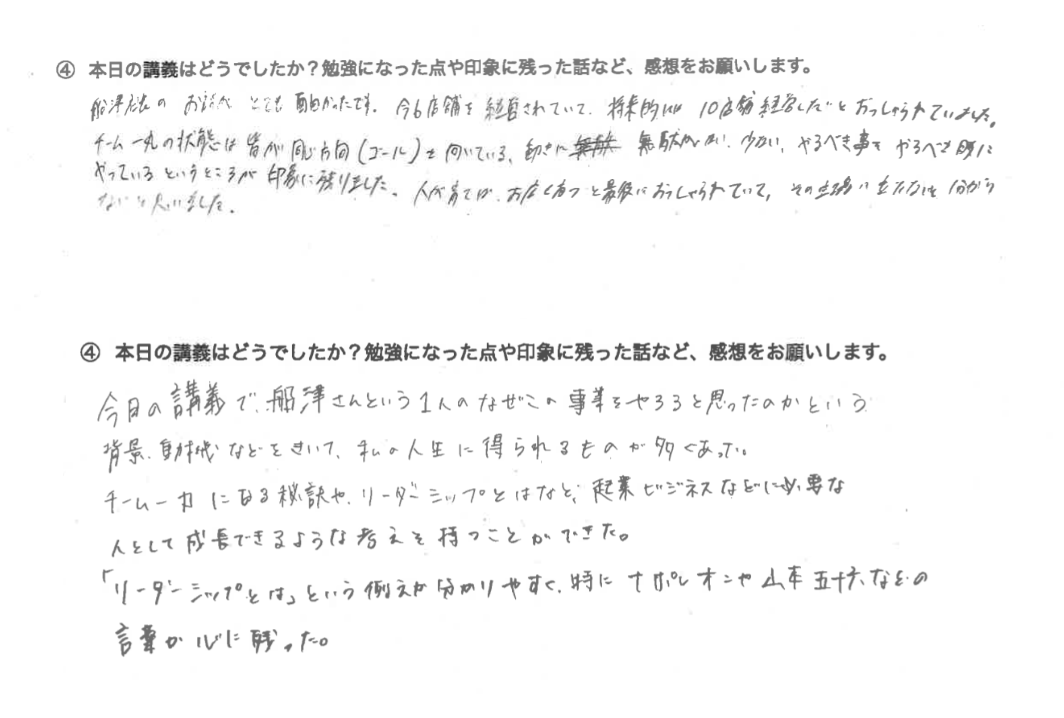 ④ 本日の講義はどうでしたか？勉強になった点や印象に残った話など、感想をお願いします。
船津 の お話が とても 面白かったです。 今6店舗を経営されていて、将来的には 10店舗経営したいとおっしゃられていました。
チーム一丸の状態は皆が同じ方向(ゴール)を向いている、動きに 無駄がない、少ない、やるべき事を やるべき時に
やっているというところが印象に残りました。人が育てば、お店も育つと最後におっしゃられていて、その 分から
ないと思いました。
④ 本日の講義はどうでしたか？勉強になった点や印象に残った話など、感想をお願いします。
今日の講義で、船津さんという1人のなぜこの事業をやろうと思ったのかという
背景、動機などをきいて、私の人生に得られるものが多くあった。
チーム一力になる秘訣や、リーダーシップとはなど、起業ビジネスなどに必要な
人として成長できるような考えを持つことができた。
「リーダーシップとは」という例えが分かりやすく、特にナポレオンや山本五十六などの
言葉が心に残った。